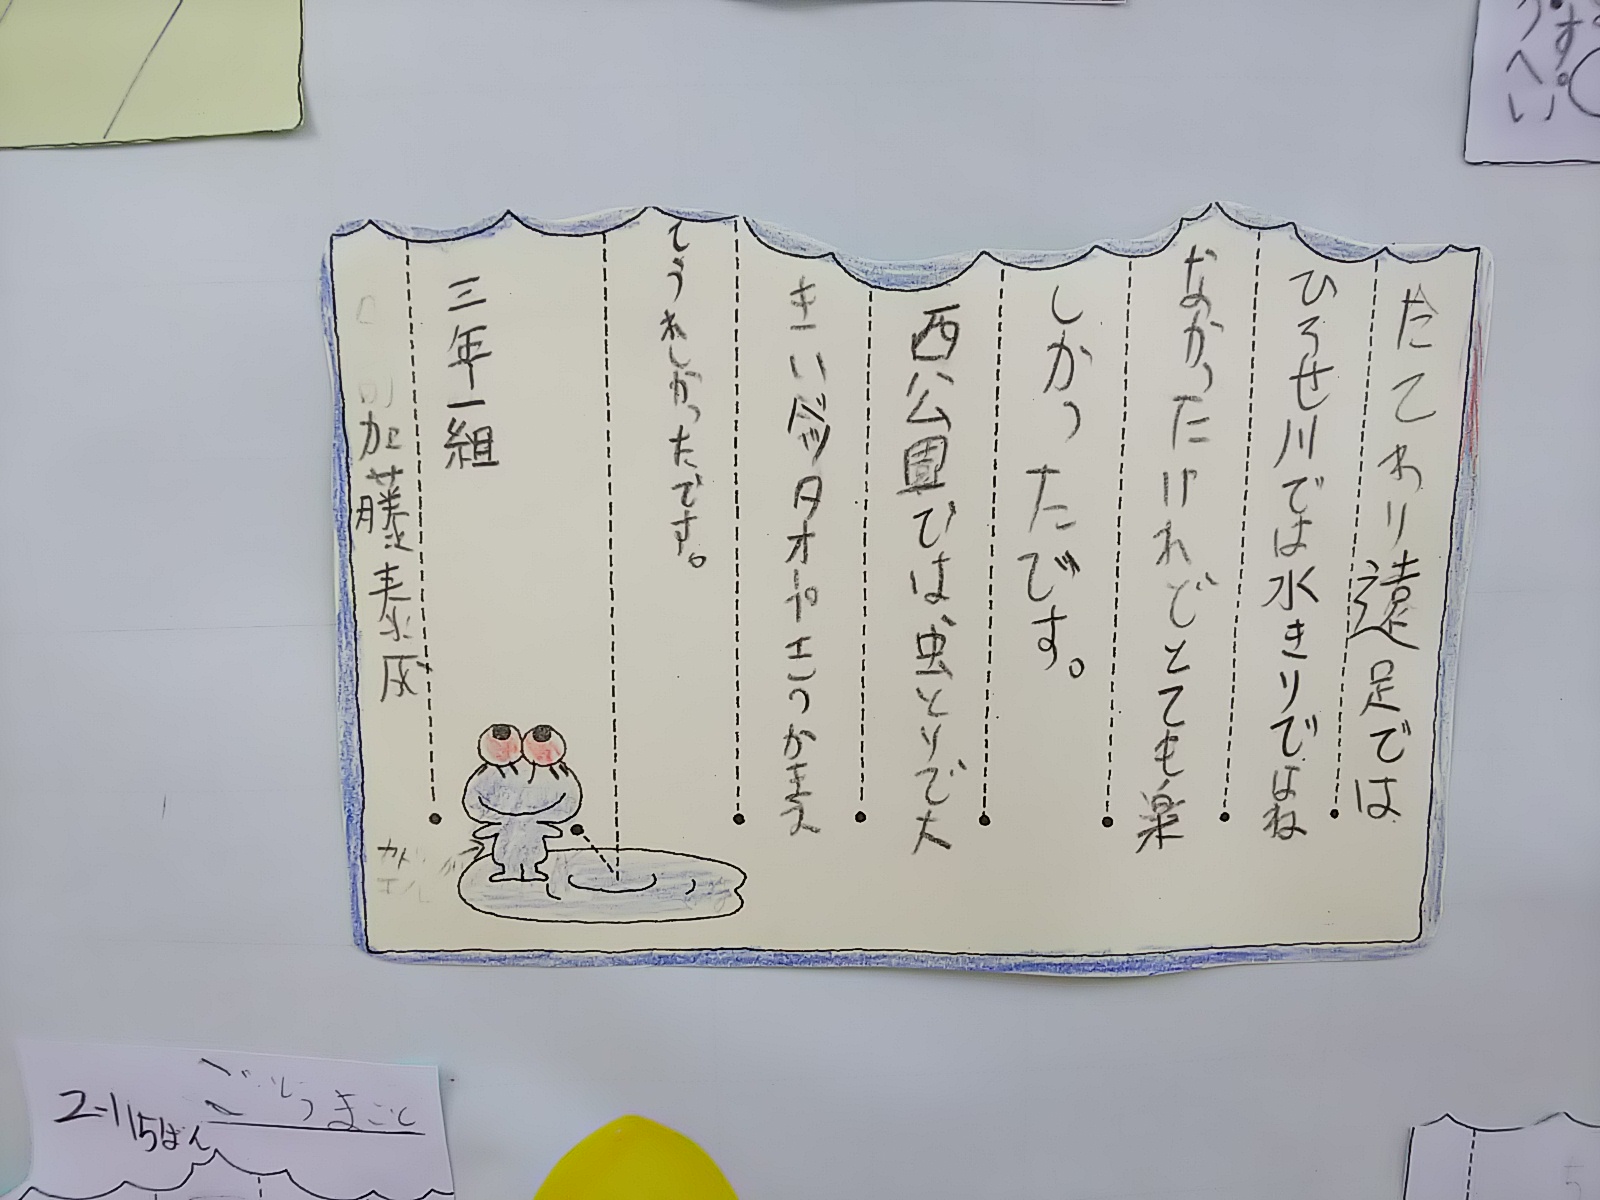 たてわり遠足では
ひろせ川では水きりではね
なかったけれどとても楽
しかったです。
西公園では虫とりで大
きいバッタオーエニつかまえ
てうれしかったです。
三年一組
加藤泰成
2-1 15ばん
ごしょうまこと